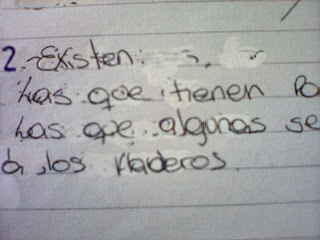 2.- Existen:
Las que tienen Po
Las que algunas se
a los Maderos.